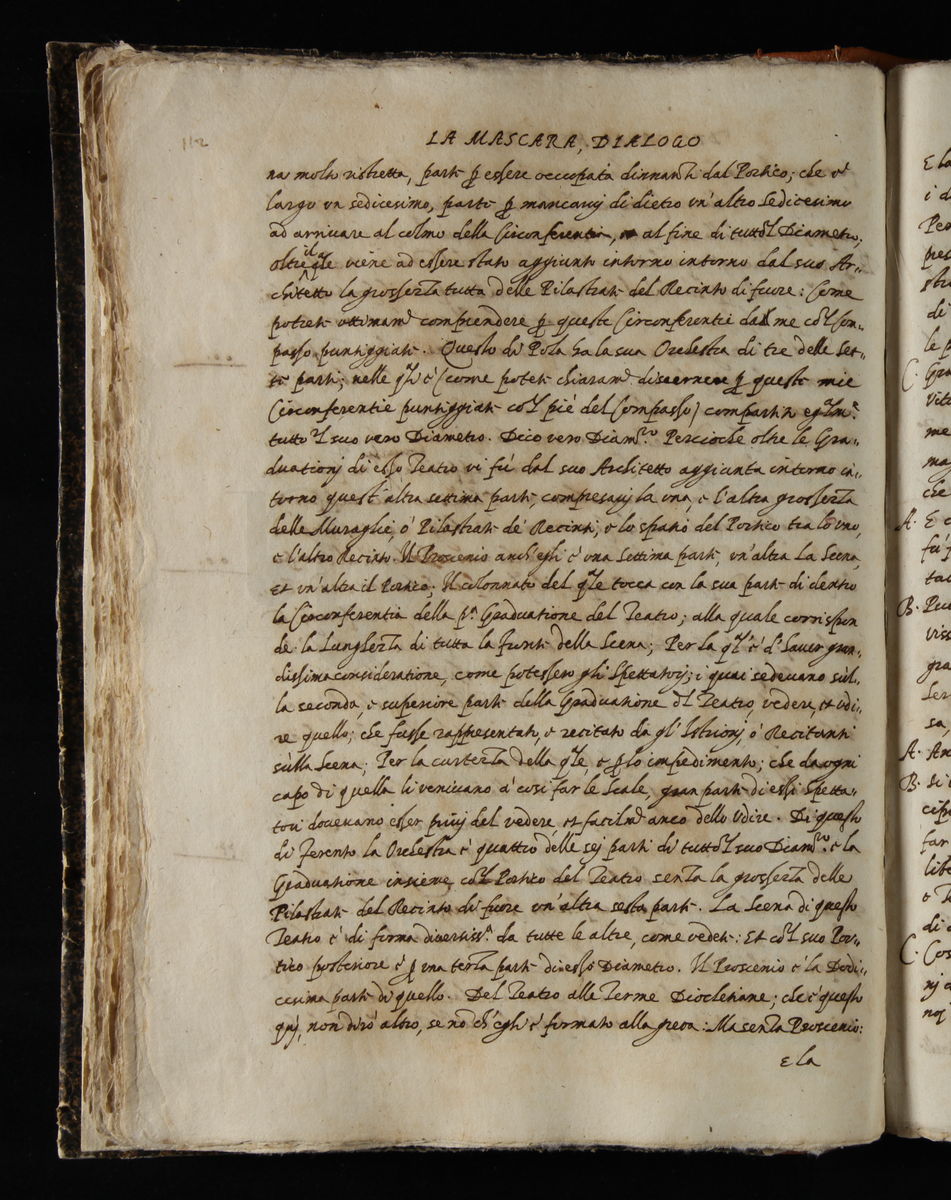 112
LA MASCARA, DIALOGO
na molto ristretta, parte p essere occupata dinnanti dal Portico; che è
largo un sedicesimo, parte p mancarvj di dietro un'altro sedicesimo
ad arrivare al colmo della Circonferentia, al fine di tutto'l Diametro,
oltre il qle viene ad essere stato aggiunto intorno intorno dal suo Ar-
chitetto la grossezza tutta delle Pilastrate del Recinto di fuore: Come
potrete ottimamte comprendere p queste Circonferentie da me co'l Com-
passo puntiggiate. Questo di Pola ha la sua Orchestra di tre delle set-
te parti; nelle qli è (come potete chiaramte discernere p queste mie
Circonferentie puntiggiate co'l piè del Compasso) compartito eqlmte
tutto'l suo vero Diametro. Dico vero Diamtro. Percioche oltre le Gra-
duationj di esso Teatro vi fù dal suo Architetto aggiunta intorno in-
torno quest'altra settima parte, compresavj la una, e l'altra grossezza
delle Muraglie, ò Pilastrate de' Recinti, e lo spatio del Portico tra lo uno,
e l'altro Recinto. Il Proscenio anch'egli è una settima parte, un'altra La Scena,
et un'altra il Portico; Il colonnato del qle tocca con la sua parte di dentro
la Circonferentia della pa Graduatione del Teatro; alla quale corrispon
de la Lunghezza di tutta la fronte della Scena; Per la ql è d'haver gran-
dissima consideratione, come potessero gli Spettatorj; i quai sedevano sùl-
la seconda, e superiore parte della Graduatione del Teatro, vedere, et udi-
re quello; che fusse rappresentato, e recitato da gl'Istrionj, ò Recitanti
sùlla Scena; Per la curtezza della qle, e p lo impedimento; che da ogni
capo di quella li venivano à cosi far le Scale, gran parte di essi Spetta-
tori dovevano esser privj del vedere, et facilmte anco dello Udire. Di questo
di Ferento la Orchestra è quattro delle sej parti di tutto'l suo Diamtro. e la
Graduatione insieme co'l Portico del Teatro senza la grossezza delle
Pilastrate del Recinto di fuore un'altra sesta parte. La Scena di questo
Teatro è di forma diversissa da tutte le altre, come vedete: Et co'l suo Por-
tico posteriore è p una terza parte di esso Diametro. Il Proscenio è la Dodi-
cesima parte di quello. Del Teatro alle Terme Diocletiane; che è questo
quj, non dirò altro, se nò ch'egli è formato alla greca: Ma senza Proscenio:
e la